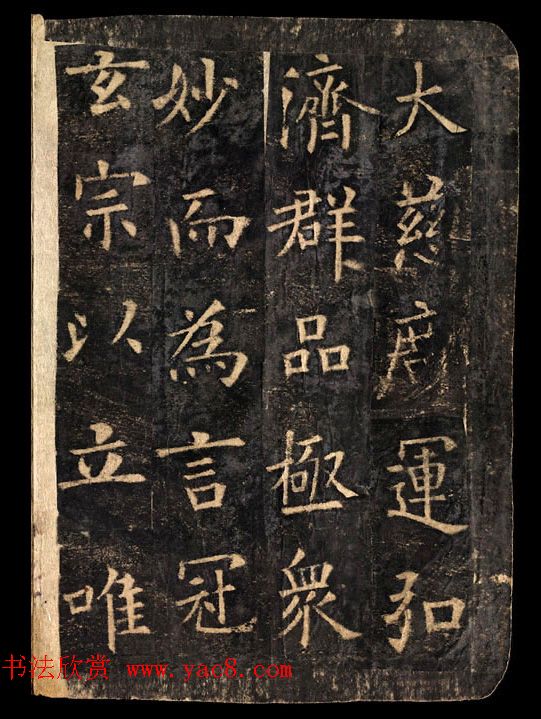 大慈運弘
濟群品極眾
妙而為言冠
玄宗以立唯
书法欣赏 www.yac8.com